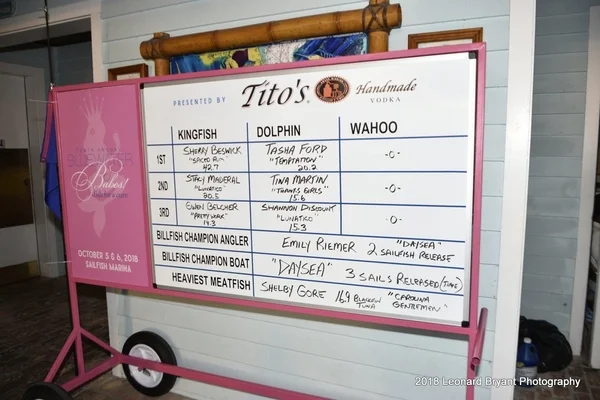 PRESENTED BY Tito's Handmade VODKA
KINGFISH DOLPHIN WAHOO
1ST SHERRY BESWICK TASHA FORD -0-
"TEMPTATION"
42.7 20.2
2ND STACY MADERAL TINA MARTIN -0-
"LUNATICO" "THANKS GIRLS"
20.5 15.6
3RD GWEN BELCHER SHANNON DISCOUNT -0-
"LUNATICO"
14.3 15.3
BILLFISH CHAMPION ANGLER EMILY RIEMER 2 "DAYSEA" SAILFISH RELEASE
BILLFISH CHAMPION BOAT "DAYSEA" 3 SAILS RELEASED (TIME)
HEAVIEST MEATFISH SHELBY GORE 16.9 BLACKFIN TUNA "CAROLINA GENTLEMEN"
Babes!
OCTOBER 5 & 6, 2018
SAILFISH MARINA
2018 Leonard Bryant Photography